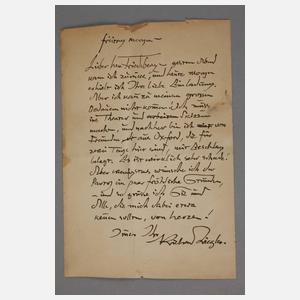 freitag morgen –
Lieber Herr Friedberg – gestern Abend
kam ich zurück, und heute morgen
erhielt ich Ihre liebe Einladung.
Aber ich kann zu meinem grossen
Bedauern nicht kommen! Ich muss
im Theater und
machen, und nachher bin ich mit
Freunden, aus Oxford, die für
zwei Tage hier sind, mit Beschlag
belegt. Es ist wirklich sehr schade!
Aber wenigstens wünsche ich
ein paar fröhliche Stunden,
– und so grüsse ich Sie und
Alle, die mich dabei etwa
kennen sollten, von Herzen!
Immer Ihr